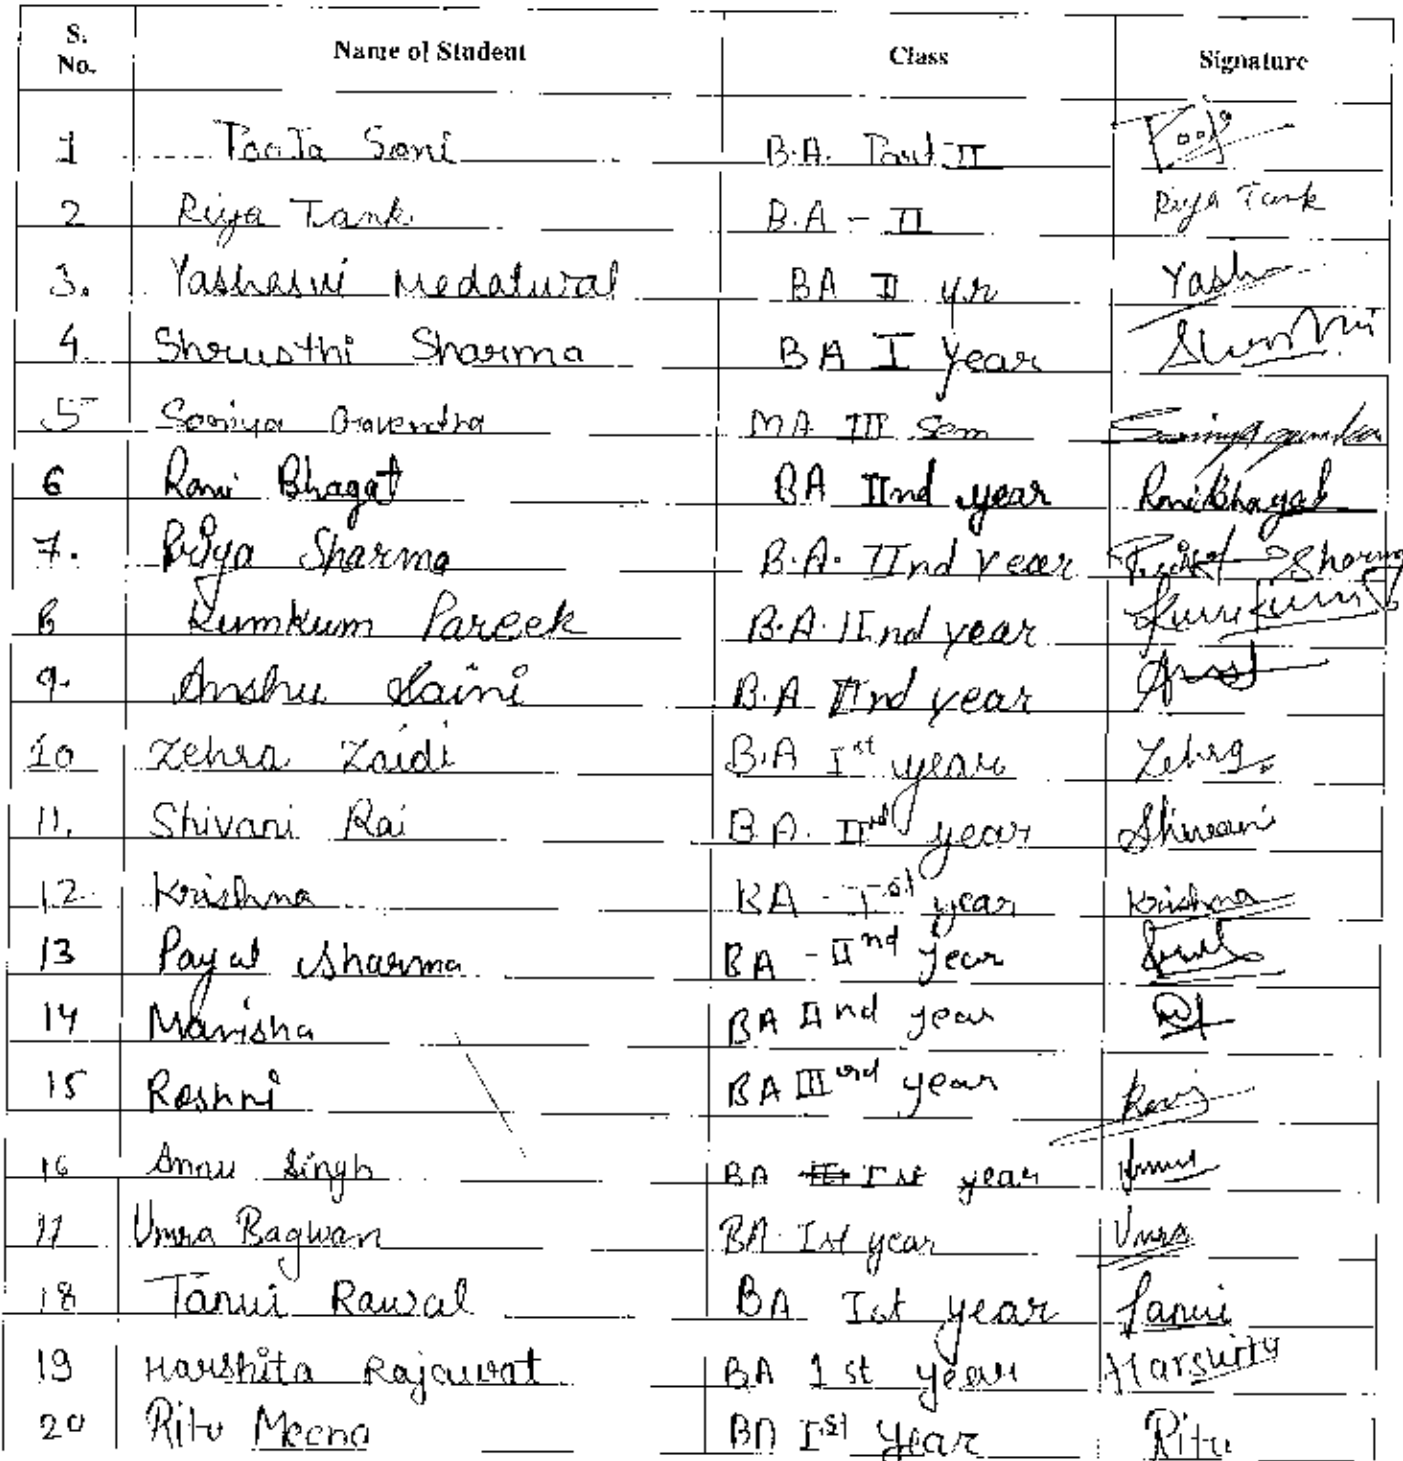 S. No. Name of Student Class Signature
1 Pooja Soni B.A. Part II
2 Riya Tank B.A - II Riya Tank
3. Yashasvi Medatwal BA II yr Yash
4. Shrusthi Sharma BA I Year
5 Soniya MA III Sem
6 Rani Bhagat BA IInd year Rani Bhagat
7. Priya Sharma B.A. IInd year Sharma
8 Kumkum Pareek B.A. IInd year Kumkum
9. Anshu Saini B.A IInd year
10 Zehra Zaidi B.A Ist year Zehra
11. Shivani Rai B.A. IInd year Shivani
12. Krishna BA - Ist year Krishna
13 Payal Sharma BA - IInd year
14 Manisha BA IInd year
15 Roshni BA IIIrd year
16 Annu Singh BA Ist year
17 Umra Bagwan BA. Ist year Umra
18 Tanvi Rawal BA Ist year Tanvi
19 Harshita Rajawat BA 1st year Harshita
20 Ritu Meena BA Ist year Ritu